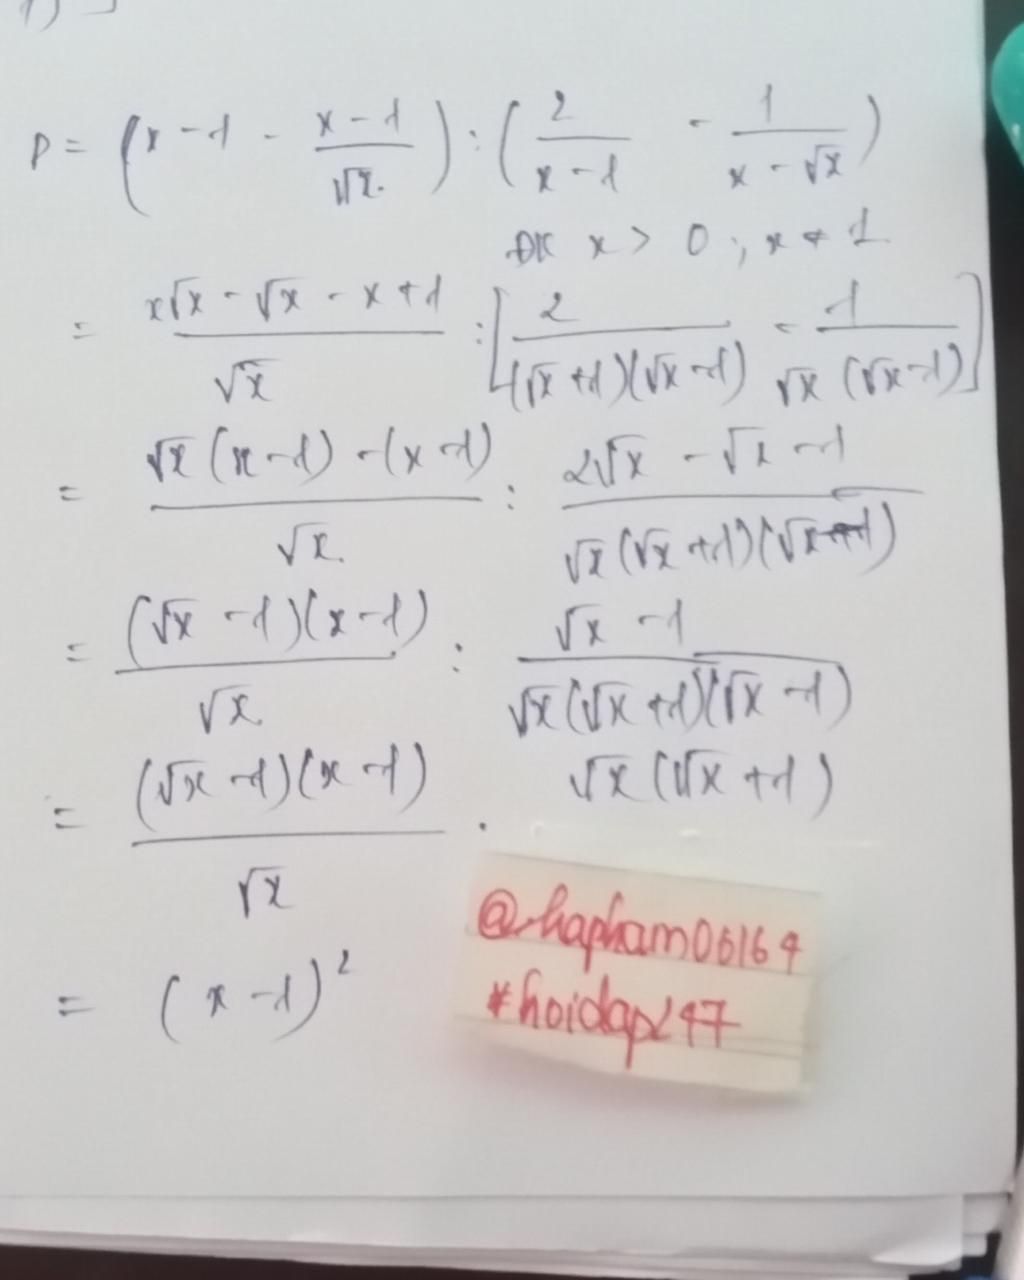 P = (x - 1 - \frac{x - 1}{\sqrt{x}}) : (\frac{2}{x - 1} - \frac{1}{x - \sqrt{x}})
ĐK x > 0 ; x ≠ 1
= \frac{x\sqrt{x} - \sqrt{x} - x + 1}{\sqrt{x}} : [\frac{2}{(\sqrt{x} + 1)(\sqrt{x} - 1)} - \frac{1}{\sqrt{x}(\sqrt{x} - 1)}]
= \frac{\sqrt{x}(x - 1) - (x - 1)}{\sqrt{x}} : \frac{2\sqrt{x} - \sqrt{x} - 1}{\sqrt{x}(\sqrt{x} + 1)(\sqrt{x} - 1)}
= \frac{(\sqrt{x} - 1)(x - 1)}{\sqrt{x}} : \frac{\sqrt{x} - 1}{\sqrt{x}(\sqrt{x} + 1)(\sqrt{x} - 1)}
= \frac{(\sqrt{x} - 1)(x - 1)}{\sqrt{x}} . \sqrt{x}(\sqrt{x} + 1)
= (x - 1)^2
@hapham06164
*hoidap247